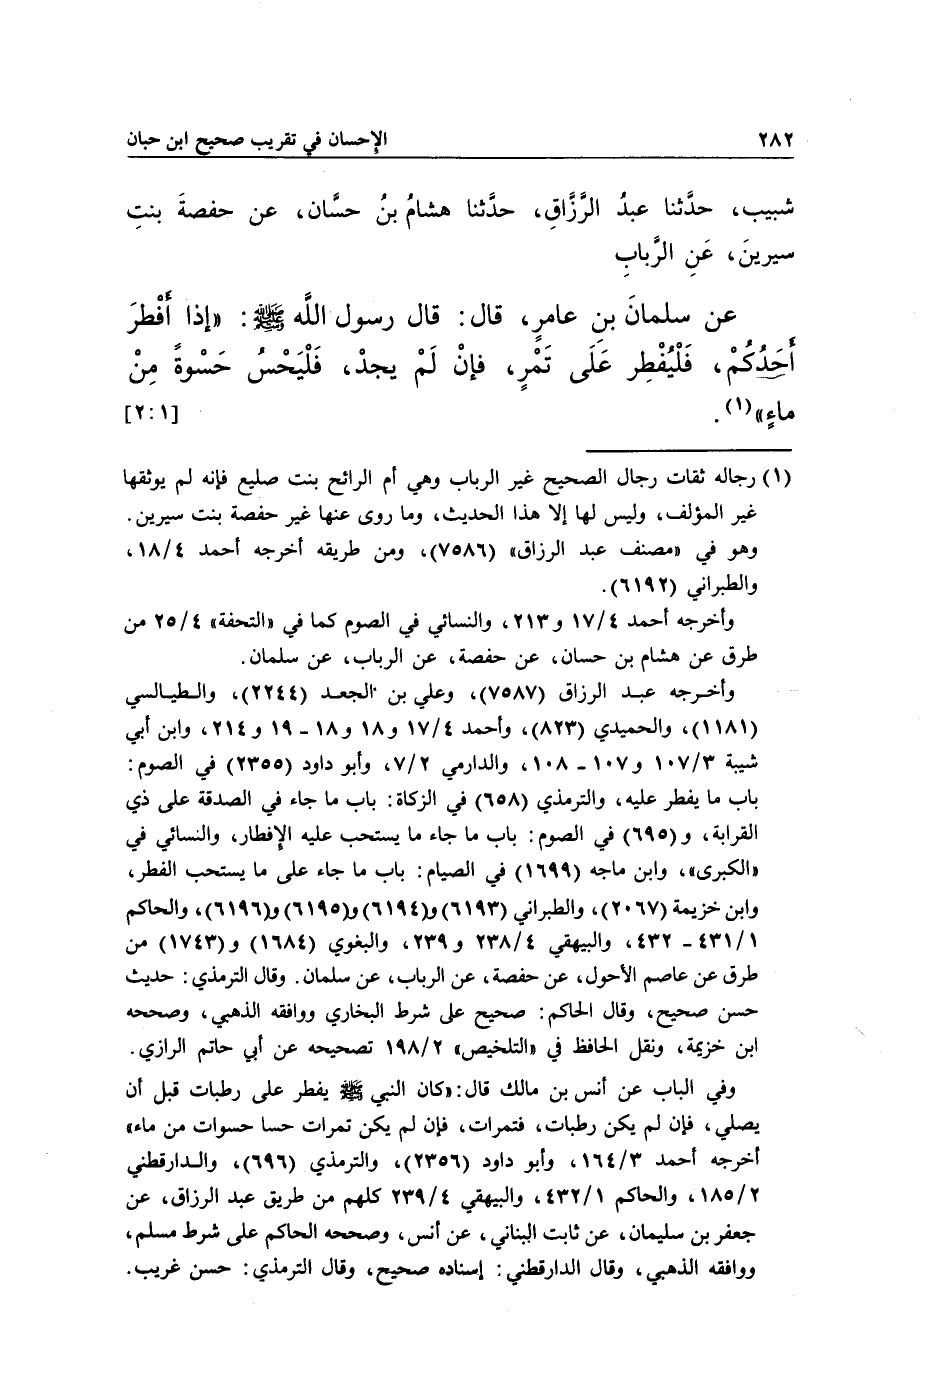 ٢٨٢ الإحسان في تقريب صحيح ابن حبان
شبيب، حدَّثنا عبدُ الرَّزَّاقِ، حدَّثنا هشامُ بنُ حسَّان، عن حفصةَ بنتِ
سيرينَ، عَنِ الرَّبابِ
عن سلمانَ بنِ عامرٍ، قال: قال رسول اللَّه ﷺ: «إذا أَفْطَرَ
أَحَدُكُمْ، فَلْيُفْطِر عَلَى تَمْرٍ، فإنْ لَمْ يجدْ، فَلْيَحْسُ حَسْوةً مِنْ
ماءٍ»(١). [١:٢]
(١) رجاله ثقات رجال الصحيح غير الرباب وهي أم الرائح بنت صليع فإنه لم يوثقها
غير المؤلف، وليس لها إلا هذا الحديث، وما روى عنها غير حفصة بنت سيرين.
وهو في «مصنف عبد الرزاق» (٧٥٨٦)، ومن طريقه أخرجه أحمد ١٨/٤،
والطبراني (٦١٩٢).
وأخرجه أحمد ١٧/٤ و٢١٣، والنسائي في الصوم كما في «التحفة» ٢٥/٤ من
طرق عن هشام بن حسان، عن حفصة، عن الرباب، عن سلمان.
وأخرجه عبد الرزاق (٧٥٨٧)، وعلي بن الجعد (٢٢٤٤)، والطيالسي
(١١٨١)، والحميدي (٨٢٣)، وأحمد ١٧/٤ و١٨ و١٨ - ١٩ و٢١٤، وابن أبي
شيبة ١٠٧/٣ و١٠٧ - ١٠٨، والدارمي ٧/٢، وأبو داود (٢٣٥٥) في الصوم:
باب ما يفطر عليه، والترمذي (٦٥٨) في الزكاة: باب ما جاء في الصدقة على ذي
القرابة، و(٦٩٥) في الصوم: باب ما جاء ما يستحب عليه الإفطار، والنسائي في
«الكبرى»، وابن ماجه (١٦٩٩) في الصيام: باب ما جاء على ما يستحب الفطر،
وابن خزيمة (٢٠٦٧)، والطبراني (٦١٩٣) و(٦١٩٤) و(٦١٩٥) و(٦١٩٦)، والحاكم
٤٣١/١ - ٤٣٢، والبيهقي ٢٣٨/٤ و٢٣٩، والبغوي (١٦٨٤) و(١٧٤٣) من
طرق عن عاصم الأحول، عن حفصة، عن الرباب، عن سلمان. وقال الترمذي: حديث
حسن صحيح، وقال الحاكم: صحيح على شرط البخاري ووافقه الذهبي، وصححه
ابن خزيمة، ونقل الحافظ في «التلخيص» ١٩٨/٢ تصحيحه عن أبي حاتم الرازي.
وفي الباب عن أنس بن مالك قال: «كان النبي ﷺ يفطر على رطبات قبل أن
يصلي، فإن لم يكن رطبات، فتمرات، فإن لم يكن تمرات حسا حسوات من ماء»
أخرجه أحمد ١٦٤/٣، وأبو داود (٢٣٥٦)، والترمذي (٦٩٦)، والدارقطني
١٨٥/٢، والحاكم ٤٣٢/١، والبيهقي ٢٣٩/٤ كلهم من طريق عبد الرزاق، عن
جعفر بن سليمان، عن ثابت البناني، عن أنس، وصححه الحاكم على شرط مسلم،
ووافقه الذهبي، وقال الدارقطني: إسناده صحيح، وقال الترمذي: حسن غريب.